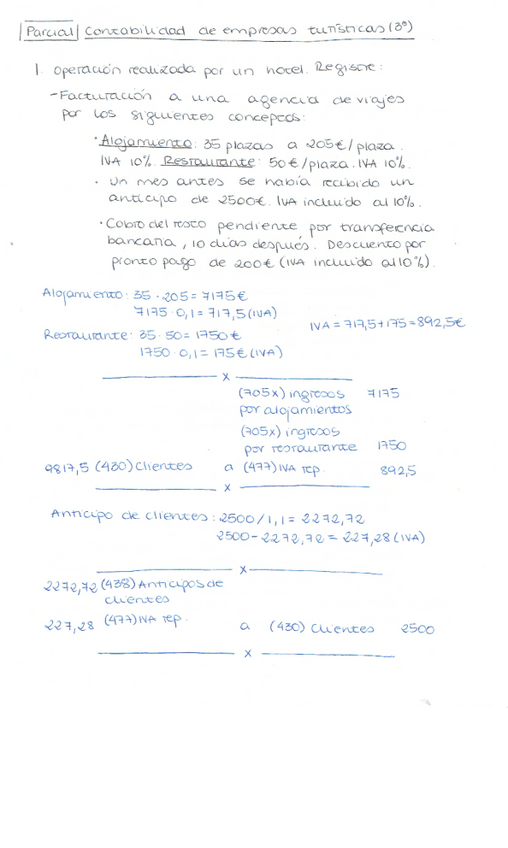 Parcial Contabilidad de empresas turísticas (3º)
1. Operación realizada por un hotel. Registre:
- Facturación a una agencia de viajes
por los siguientes conceptos:
· Alojamiento: 35 plazas a 205€/plaza.
IVA 10%. Restaurante: 50€/plaza. IVA 10%.
· Un mes antes se había recibido un
anticipo de 2500€. IVA incluido al 10%.
· Cobro del resto pendiente por transferencia
bancaria, 10 días después. Descuento por
pronto pago de 200€ (IVA incluido al 10%).
Alojamiento: 35 · 205 = 7175€
7175 · 0,1 = 717,5 (IVA)
IVA = 717,5 + 175 = 892,5€
Restaurante: 35 · 50 = 1750€
1750 · 0,1 = 175€ (IVA)
x
(705x) ingresos 7175
por alojamientos
(705x) ingresos
por restaurante 1750
9817,5 (430) Clientes a (477) IVA rep. 892,5
x
Anticipo de clientes: 2500/1,1 = 2272,72
2500 - 2272,72 = 227,28 (IVA)
x
2272,72 (438) Anticipos de
clientes
227,28 (477) IVA rep. a (430) Clientes 2500
x